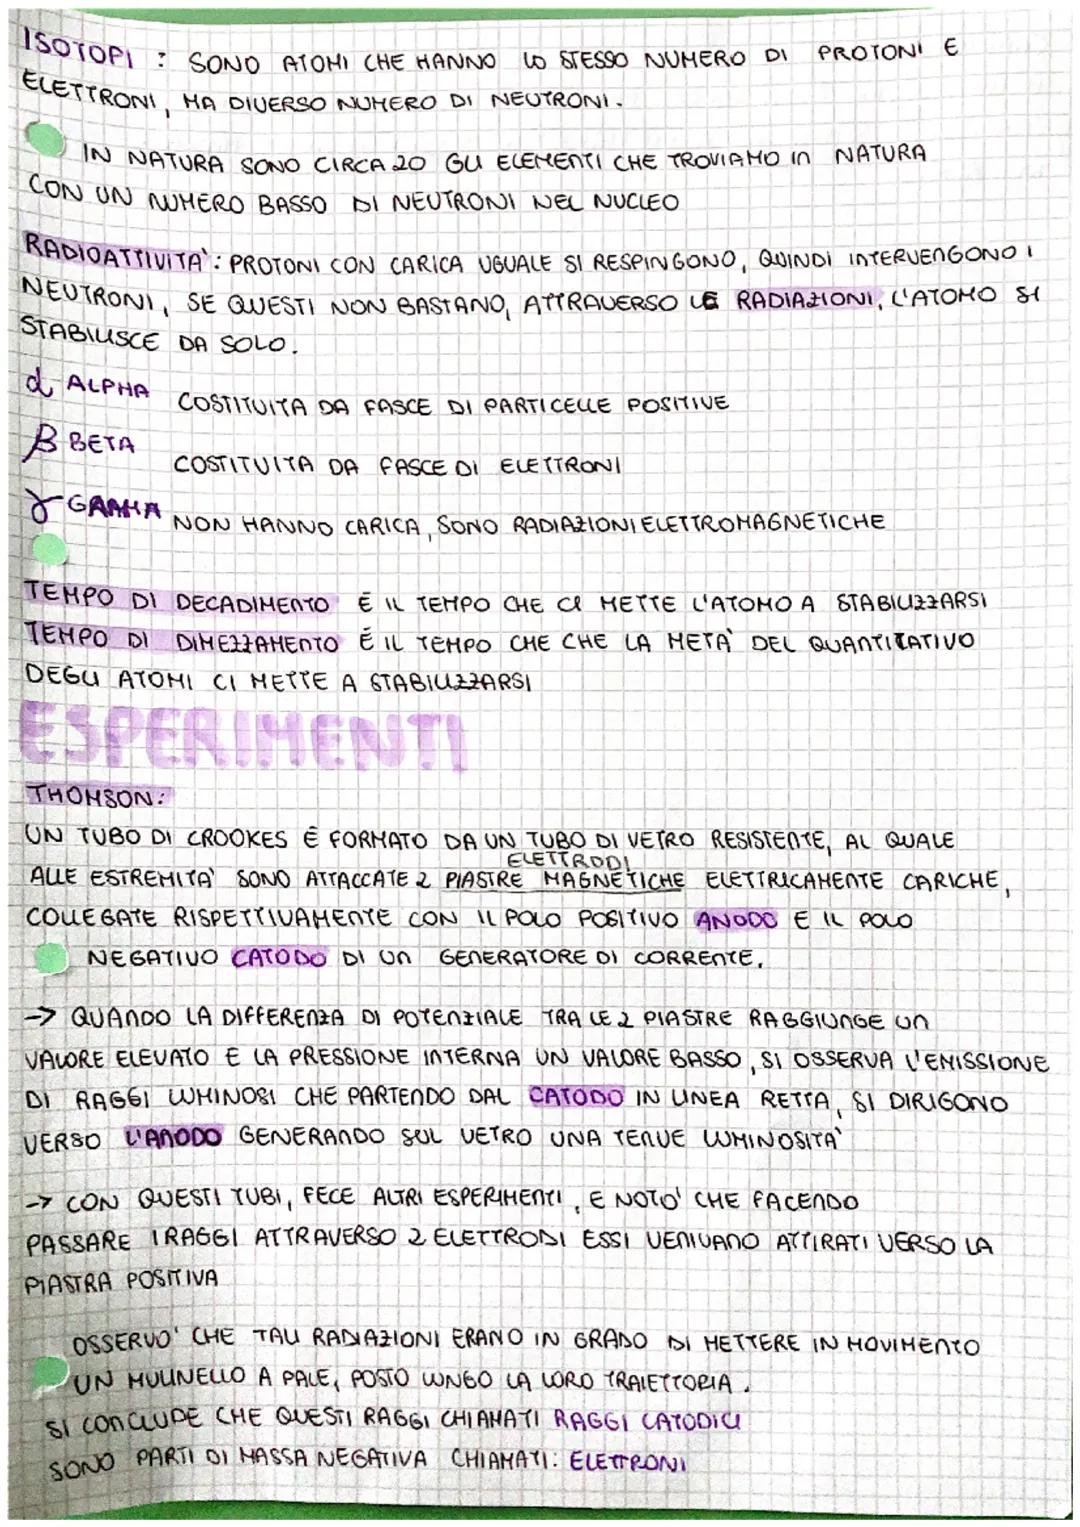 ISOTOPI : SONO ATOMI CHE HANNO LO STESSO NUMERO DI PROTONI E
ELETTRONI, MA DIVERSO NUMERO DI NEUTRONI.
IN NATURA SONO CIRCA 20 GLI ELEMENTI CHE TROVIAMO IN NATURA
CON UN NUMERO BASSO DI NEUTRONI NEL NUCLEO
RADIOATTIVITA': PROTONI CON CARICA UGUALE SI RESPINGONO, QUINDI INTERVENGONO I
NEUTRONI, SE QUESTI NON BASTANO, ATTRAVERSO LE RADIAZIONI, L'ATOMO SI
STABILISCE DA SOLO.
α ALPHA COSTITUITA DA FASCE DI PARTICELLE POSITIVE
β BETA COSTITUITA DA FASCE DI ELETTRONI
γ GAMMA NON HANNO CARICA, SONO RADIAZIONI ELETTROMAGNETICHE
TEMPO DI DECADIMENTO É IL TEMPO CHE CI METTE L'ATOMO A STABILIZZARSI
TEMPO DI DIMEZZAMENTO É IL TEMPO CHE CHE LA META' DEL QUANTITATIVO
DEGLI ATOMI CI METTE A STABILIZZARSI
ESPERIMENTI
THOMSON:
UN TUBO DI CROOKES É FORMATO DA UN TUBO DI VETRO RESISTENTE, AL QUALE
ELETTRODI
ALLE ESTREMITA' SONO ATTACCATE 2 PIASTRE MAGNETICHE ELETTRICAMENTE CARICHE,
COLLEGATE RISPETTIVAMENTE CON IL POLO POSITIVO ANODO E IL POLO
NEGATIVO CATODO DI UN GENERATORE DI CORRENTE.
-> QUANDO LA DIFFERENZA DI POTENZIALE TRA LE 2 PIASTRE RAGGIUNGE UN
VALORE ELEVATO E LA PRESSIONE INTERNA UN VALORE BASSO, SI OSSERVA L'EMISSIONE
DI RAGGI LUMINOSI CHE PARTENDO DAL CATODO IN LINEA RETTA, SI DIRIGONO
VERSO L'ANODO GENERANDO SUL VETRO UNA TENUE LUMINOSITA'
-> CON QUESTI TUBI, FECE ALTRI ESPERIMENTI, E NOTO' CHE FACENDO
PASSARE I RAGGI ATTRAVERSO 2 ELETTRODI ESSI VENIVANO ATTIRATI VERSO LA
PIASTRA POSITIVA
OSSERVO' CHE TALI RADIAZIONI ERANO IN GRADO DI METTERE IN MOVIMENTO
UN MULINELLO A PALE, POSTO LUNGO LA LORO TRAIETTORIA.
SI CONCLUDE CHE QUESTI RAGGI CHIAMATI RAGGI CATODICI
SONO PARTI DI MASSA NEGATIVA CHIAMATI: ELETTRONI